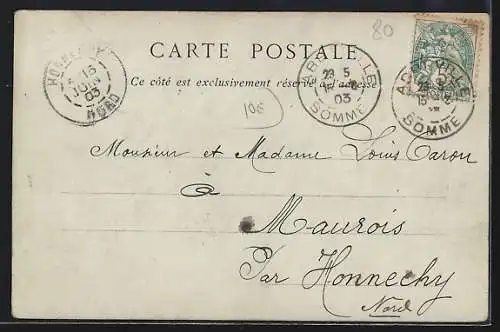 80
CARTE POSTALE
Ce côté est exclusivement réservé à l'adresse
HONNECHY
16
JUIN
03
NORD
ABBEVILLE
23 5
15
03
SOMME
ABBEVILLE
23
15
SOMME
Monsieur et Madame Louis Caron
à
Maurois
Par Honnechy
Nord